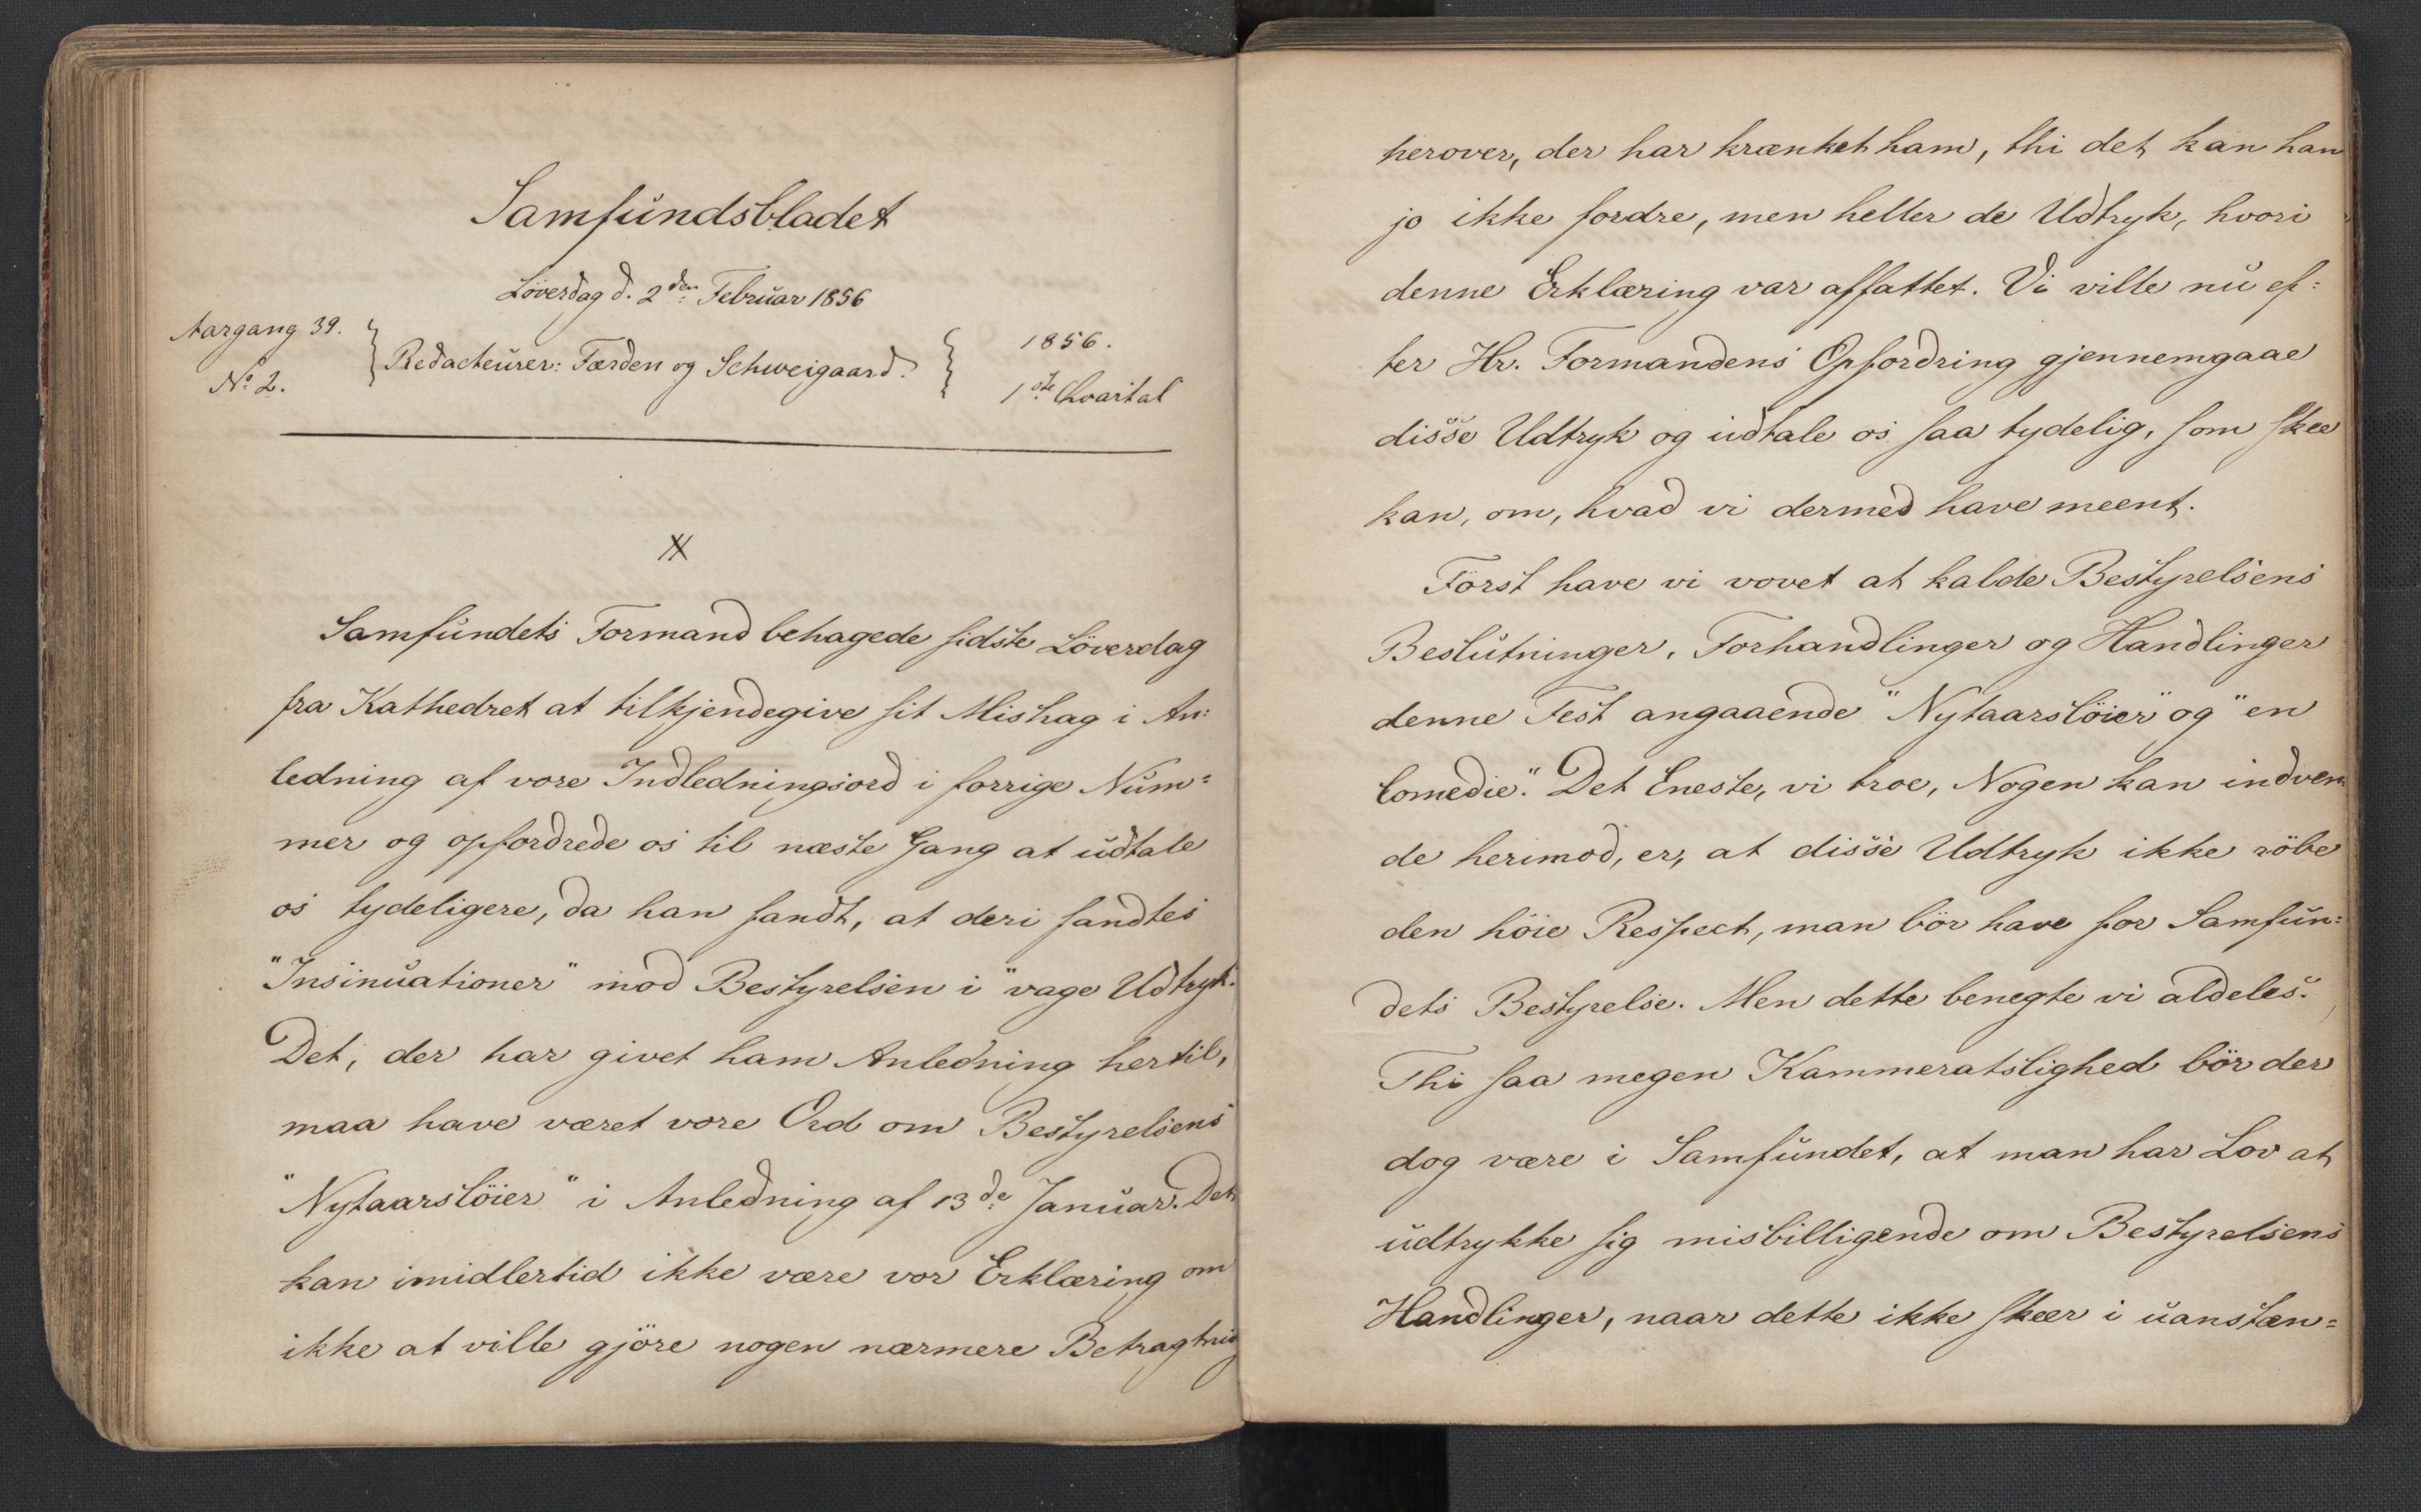 Samfundsbladet
Löverdag d. 2den Februar 1856
Aargang 39.
No 2.
Redacteurer: Færden og Schweigaard.
1856.
1ste Qvartal
X
Samfundets Formand behagede sidste Löverdag
fra Kathedret at tilkjendegive sit Mishag i An:
ledning af vore Indledningsord i forrige Num=
mer og opfordrede os til næste Gang at udtale
os tydeligere, da han fandt, at deri fandtes
"Insinuationer" mod Bestyrelsen i "vage Udtryk."
Det, der har givet ham Anledning hertil,
maa have været vore Ord om Bestyrelsens
"Nytaarslöier" i Anledning af 13de Januar. Det
kan imidlertid ikke være vor Erklæring om
ikke at ville gjöre nogen nærmere Betragtning
herover, der har krænket ham, thi det kan han
jo ikke fordre, men heller de Udtryk, hvori
denne Erklæring var affattet. Vi ville nu ef:
ter Hr. Formandens Opfordring gjennemgaae
disse Udtryk og udtale os saa tydelig, som skee
kan, om, hvad vi dermed have meent.
Först have vi vovet at kalde Bestyrelsens
Beslutninger, Forhandlinger og Handlinger
denne Fest angaaende "Nytaarslöier" og "en
Comedie." Det Eneste, vi troe, Nogen kan indven
de herimod, er, at disse Udtryk ikke röbe
den höie Respect, man bör have for Samfun:
dets Bestyrelse. Men dette benegte vi aldeles.
Thi saa megen Kammeratslighed bör der
dog være i Samfundet, at man har Lov at
udtrykke sig misbilligende om Bestyrelsens
Handlinger, naar dette ikke skeer i uanstæn=